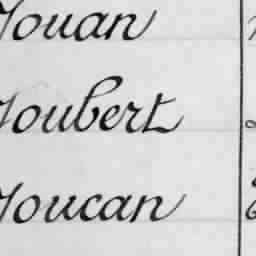 Jouan
Joubert
Joucan